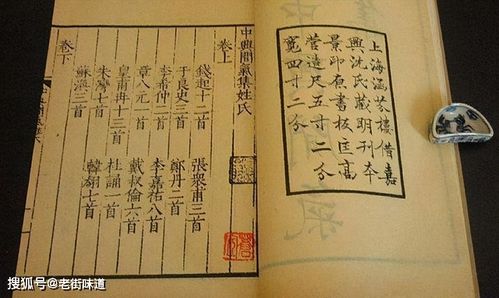 上海涵芬樓借嘉
興沈氏藏明刊本
景印原書板匡高
營造尺五寸二分
寬四寸二分
中興間氣集姓氏
卷上
錢起十二首 張衆甫三首
于良史二首 鄭丹二首
李希仲二首 李嘉祐八首
章八元二首 戴叔倫六首
皇甫冉十三首 杜誦一首
朱灣七首 韓翃七首
蘇渙三首
卷下
搜狐号@老街味道